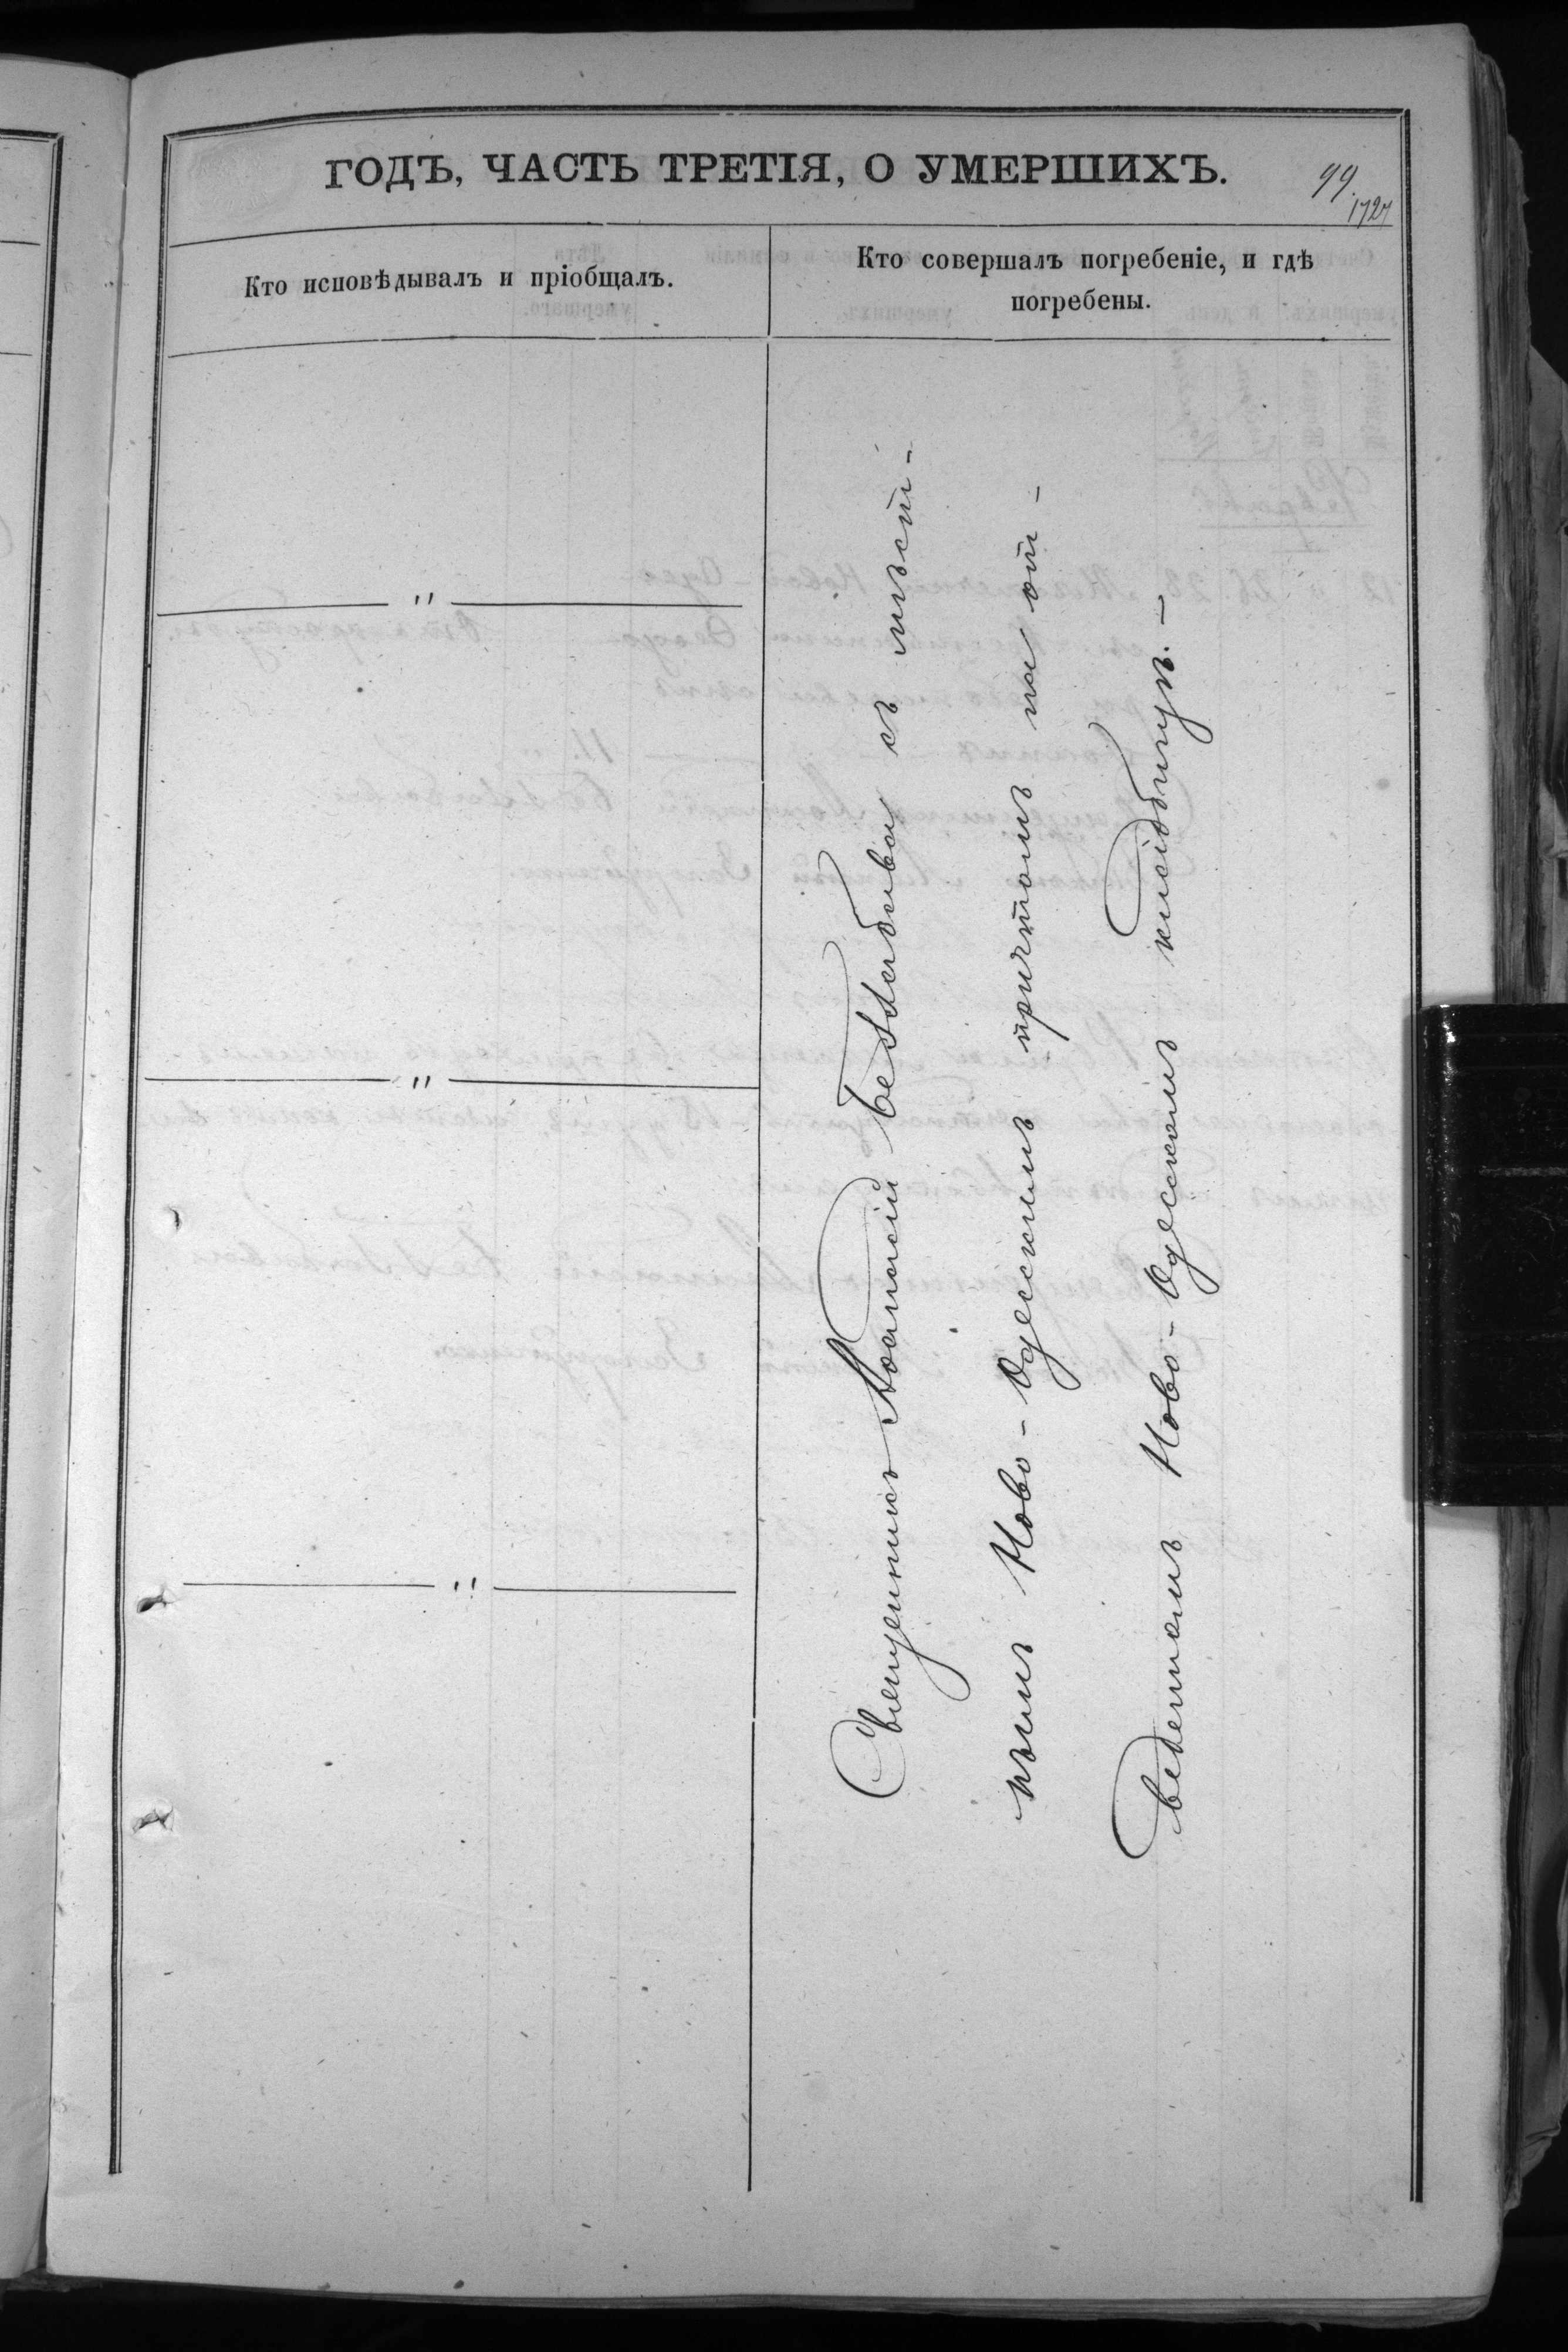 ГОДЪ, ЧАСТЬ ТРЕТІЯ, О УМЕРШИХЪ.
99.
1727
Кто исповѣдывалъ и пріобщалъ.
Кто совершалъ погребеніе, и гдѣ
погребены.
"
"
"
Священникъ Іоанній Беззабава съ мѣст-
нымъ Ново-Одесскимъ причтомъ на от-
веденномъ Ново-Одесскомъ кладбищѣ.-